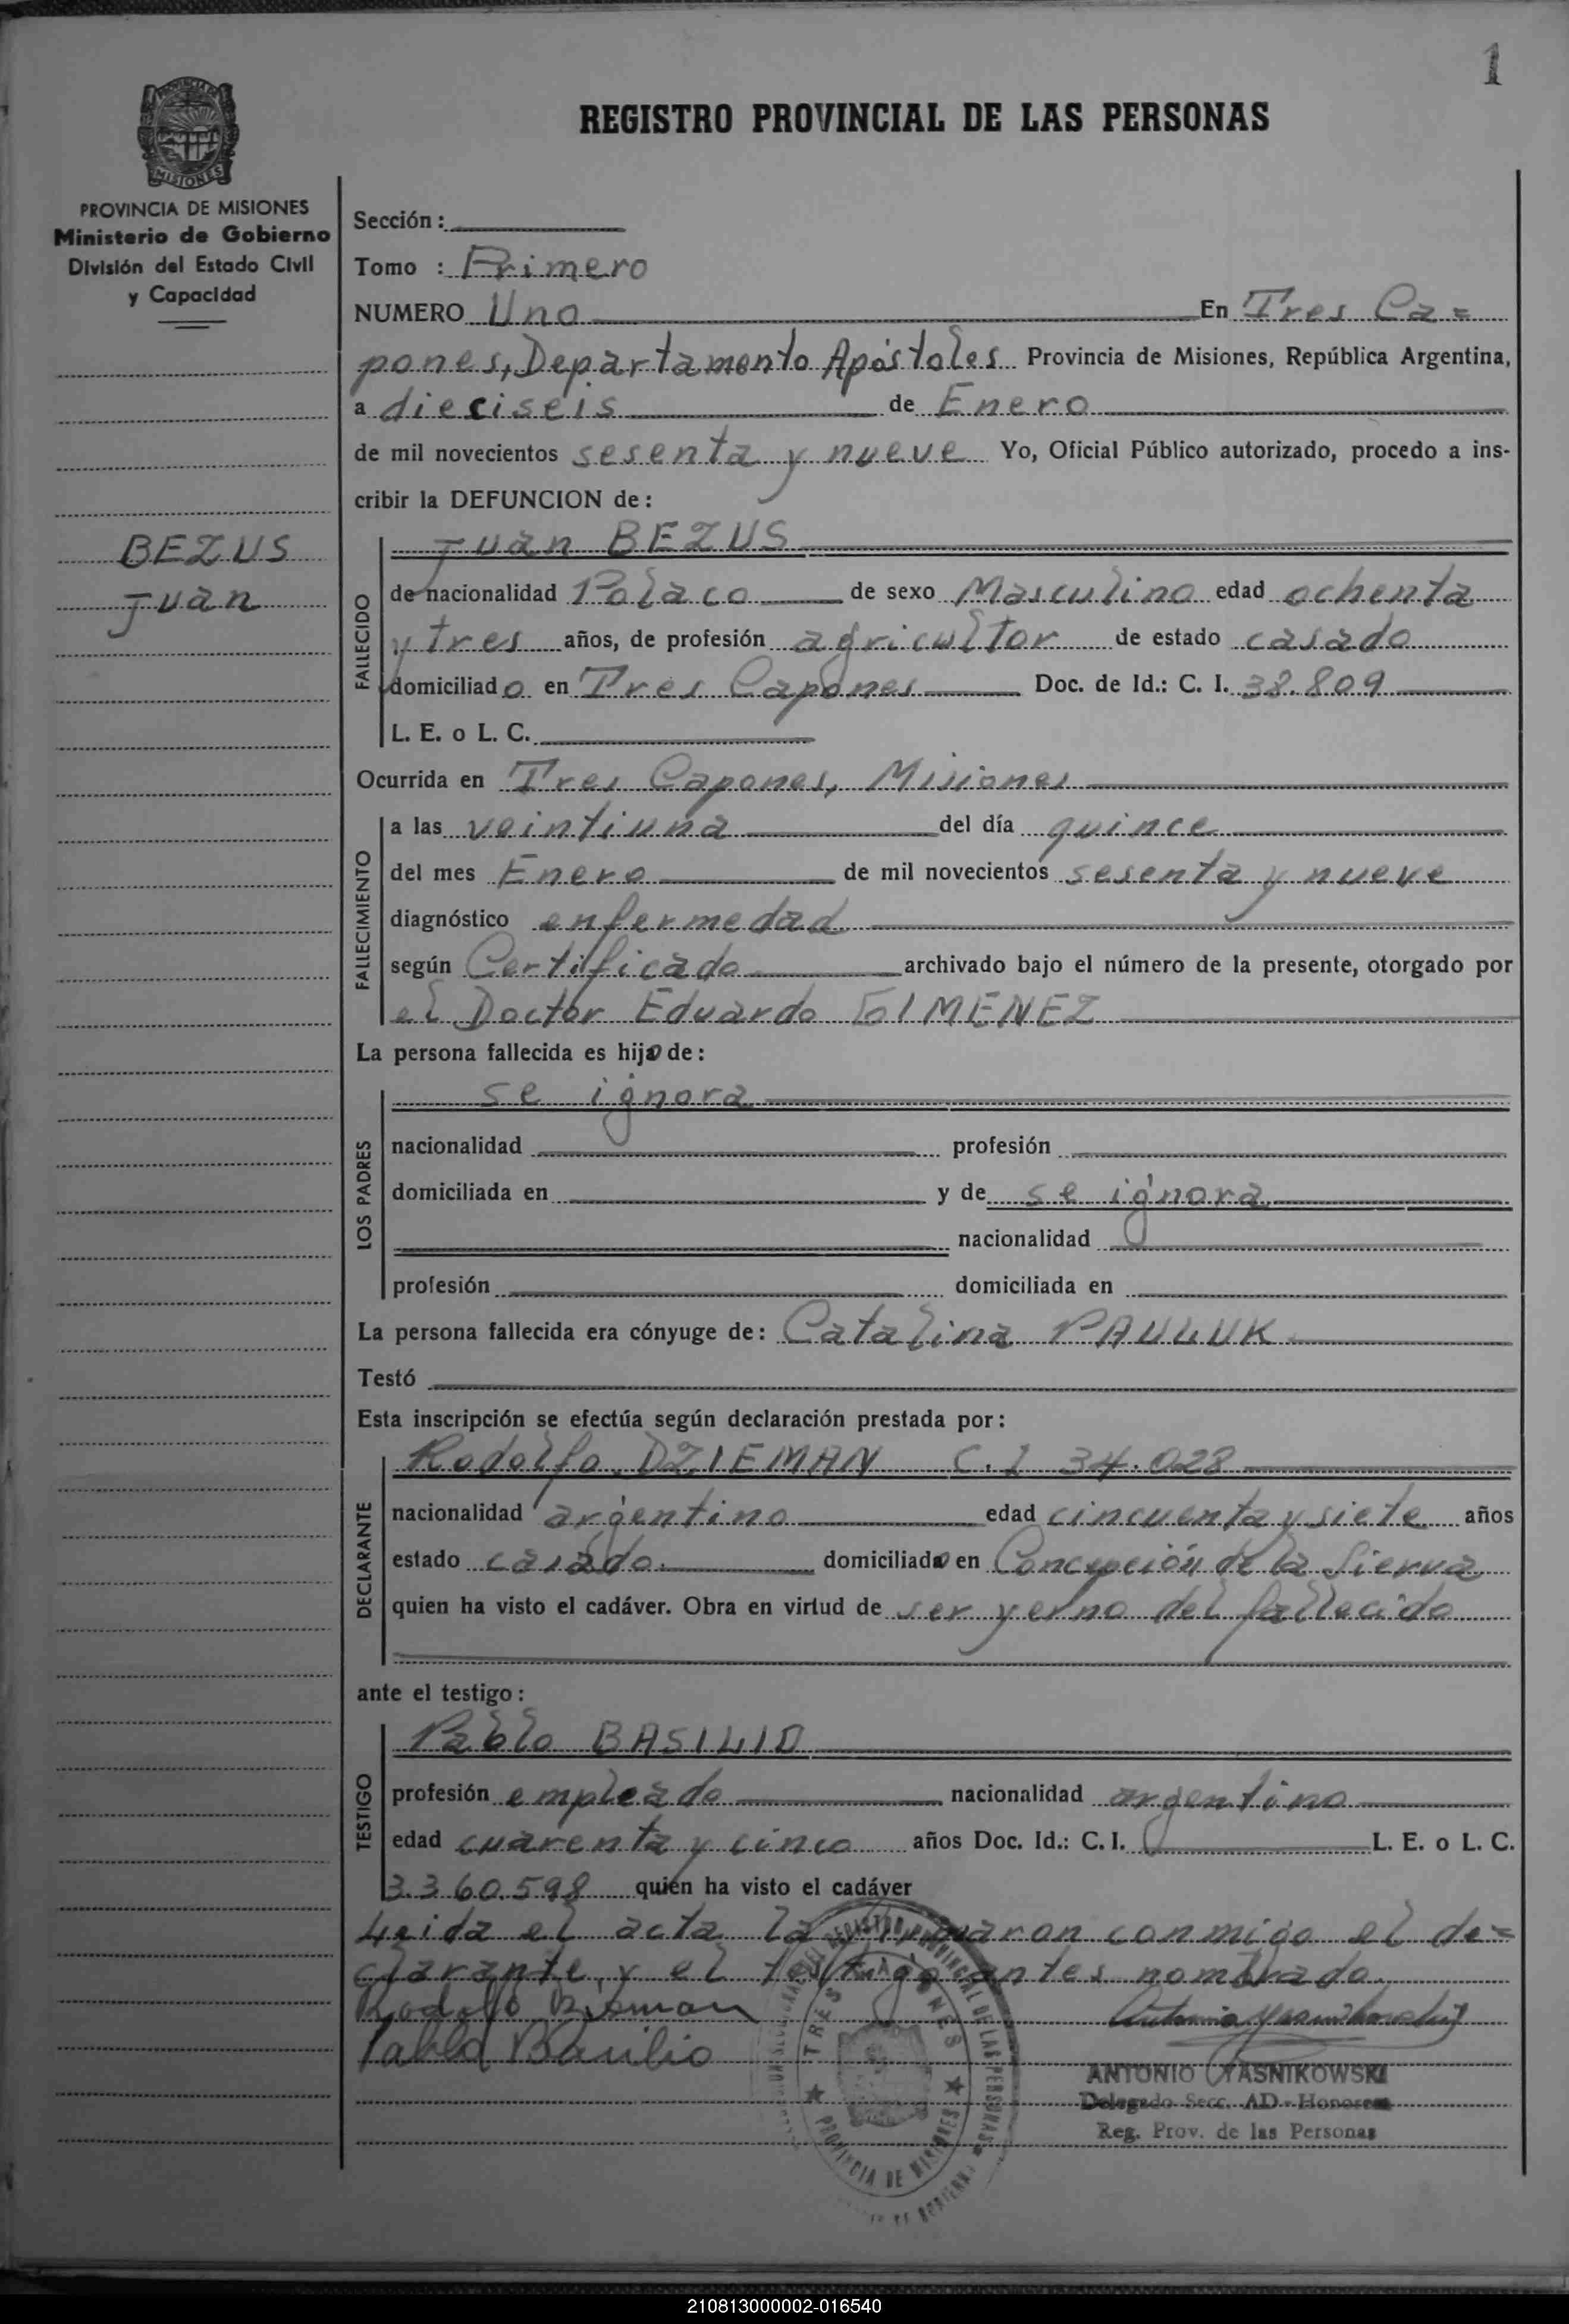 1
REGISTRO PROVINCIAL DE LAS PERSONAS
MISIONES
PROVINCIA DE MISIONES
Ministerio de Gobierno
División del Estado Civil
y Capacidad
BEZUS
Juan
Sección:
Tomo : Primero
NUMERO Uno En Tres Ca=
pones, Departamento Apóstoles Provincia de Misiones, República Argentina,
a dieciseis de Enero
de mil novecientos sesenta y nueve Yo, Oficial Público autorizado, procedo a ins-
cribir la DEFUNCION de:
FALLECIDO
Juan BEZUS
de nacionalidad Polaco de sexo Masculino edad ochenta
y tres años, de profesión agricultor de estado casado
domiciliado en Tres Capones Doc. de Id.: C. I. 38.809
L. E. o L. C.
Ocurrida en Tres Capones, Misiones
FALLECIMIENTO
a las veintiuna del día quince
del mes Enero de mil novecientos sesenta y nueve
diagnóstico enfermedad
según Certificado archivado bajo el número de la presente, otorgado por
el Doctor Eduardo GIMENEZ
La persona fallecida es hijo de:
LOS PADRES
se ignora
nacionalidad profesión
domiciliada en y de se ignora
nacionalidad
profesión domiciliada en
La persona fallecida era cónyuge de: Catalina PAULUK
Testó
Esta inscripción se efectúa según declaración prestada por:
DECLARANTE
Rodolfo DZIEMAN C. I 34.028
nacionalidad argentino edad cincuenta y siete años
estado casado domiciliado en Concepción de la Sierra
quien ha visto el cadáver. Obra en virtud de ser yerno del fallecido
ante el testigo:
TESTIGO
Pablo BASILIO
profesión empleado nacionalidad argentino
edad cuarenta y cinco años Doc. Id.: C. I. L. E. o L. C.
3.360.598 quien ha visto el cadáver
Leida el acta la firmaron conmigo el de=
clarante, y el testigo antes nombrado.
Rodolfo
Pablo Basilio
TRES CAPONES
PROVINCIA DE MISIONES
REGISTRO PROVINCIAL DE LAS PERSONAS
ANTONIO YASNIKOWSKI
Delegado Secc. AD-Honorem
Reg. Prov. de las Personas
210813000002-016540